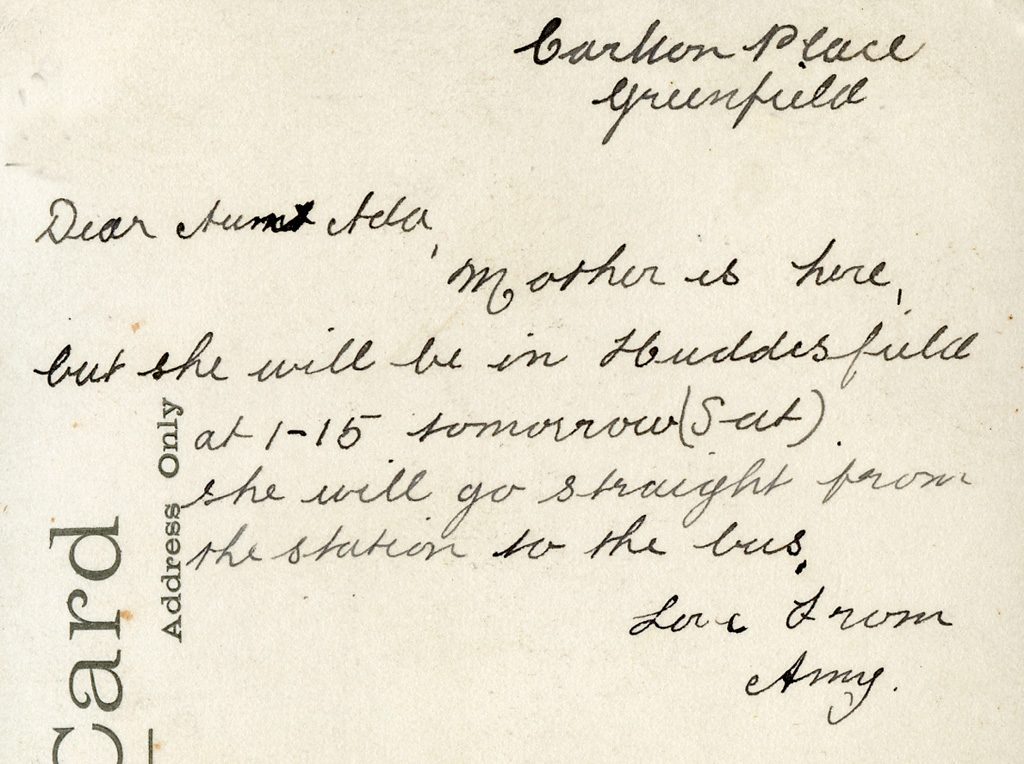 Carlton Place
Greenfield
Dear Aunt Ada,
Mother is here,
but she will be in Huddesfield
at 1-15 tomorrow (Sat).
she will go straight from
the station to the bus.
Love From
Amy.
Card
Address Only